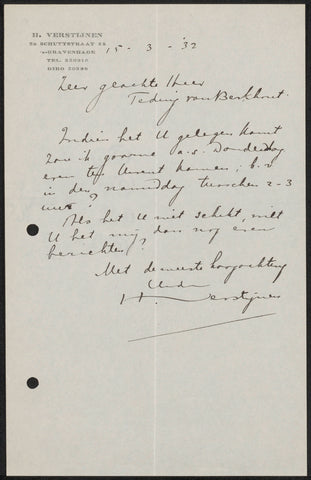 H. VERSTIJNEN
2e SCHUYTSTRAAT
's-GRAVENHAGE
TEL.
GIRO
15 - 3 - '32
Zeer geachte Heer
Teding van Berkhout.
Indien het U gelegen komt
zou ik gaarne a.s. Donderdag
even ten Uwent komen, b.v
in den namiddag tusschen 2-3
uur?
Als het U niet schikt, wilt
U het mij dan nog even
berichten?
Met de meeste hoogachting
H. Verstijnen